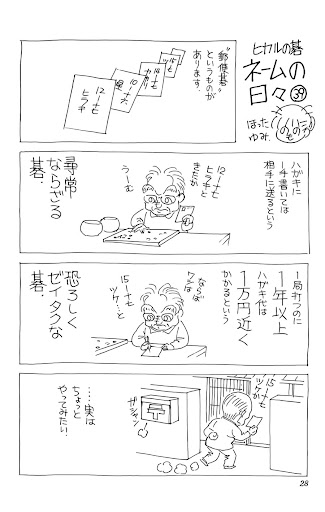 ヒカルの碁
ネームの
日々㊴
ほった
ゆみ
"郵便碁"
というものが
あります。
12-十七
ヒラキ
ハガキに
一手書いては
相手に送るという
12-十七
ヒラキと
きたか
うーむ
尋常
ならざる
碁.
1局打つのに
1年以上
ハガキ代は
1万円近く
かかるという
ならば
ワシは
15-十七
ツケ…と
恐ろしく
ゼイタクな
碁.
15-十七
ツケか
ガシャン
……実は
ちょっと
やってみたい!
28